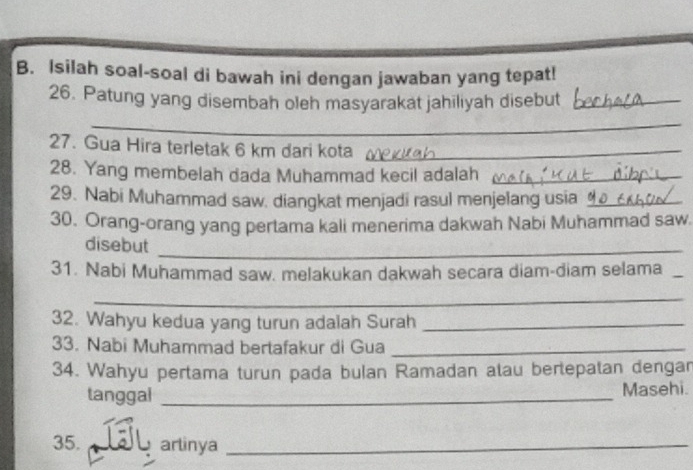 B. Isilah soal-soal di bawah ini dengan jawaban yang tepat!
26. Patung yang disembah oleh masyarakat jahiliyah disebut berhala
27. Gua Hira terletak 6 km dari kota mekkah
28. Yang membelah dada Muhammad kecil adalah
29. Nabi Muhammad saw. diangkat menjadi rasul menjelang usia 40 tahun
30. Orang-orang yang pertama kali menerima dakwah Nabi Muhammad saw.
disebut
31. Nabi Muhammad saw. melakukan dakwah secara diam-diam selama
32. Wahyu kedua yang turun adalah Surah
33. Nabi Muhammad bertafakur di Gua
34. Wahyu pertama turun pada bulan Ramadan atau bertepatan dengan
tanggal Masehi.
35. بِالْقَلَمِ artinya